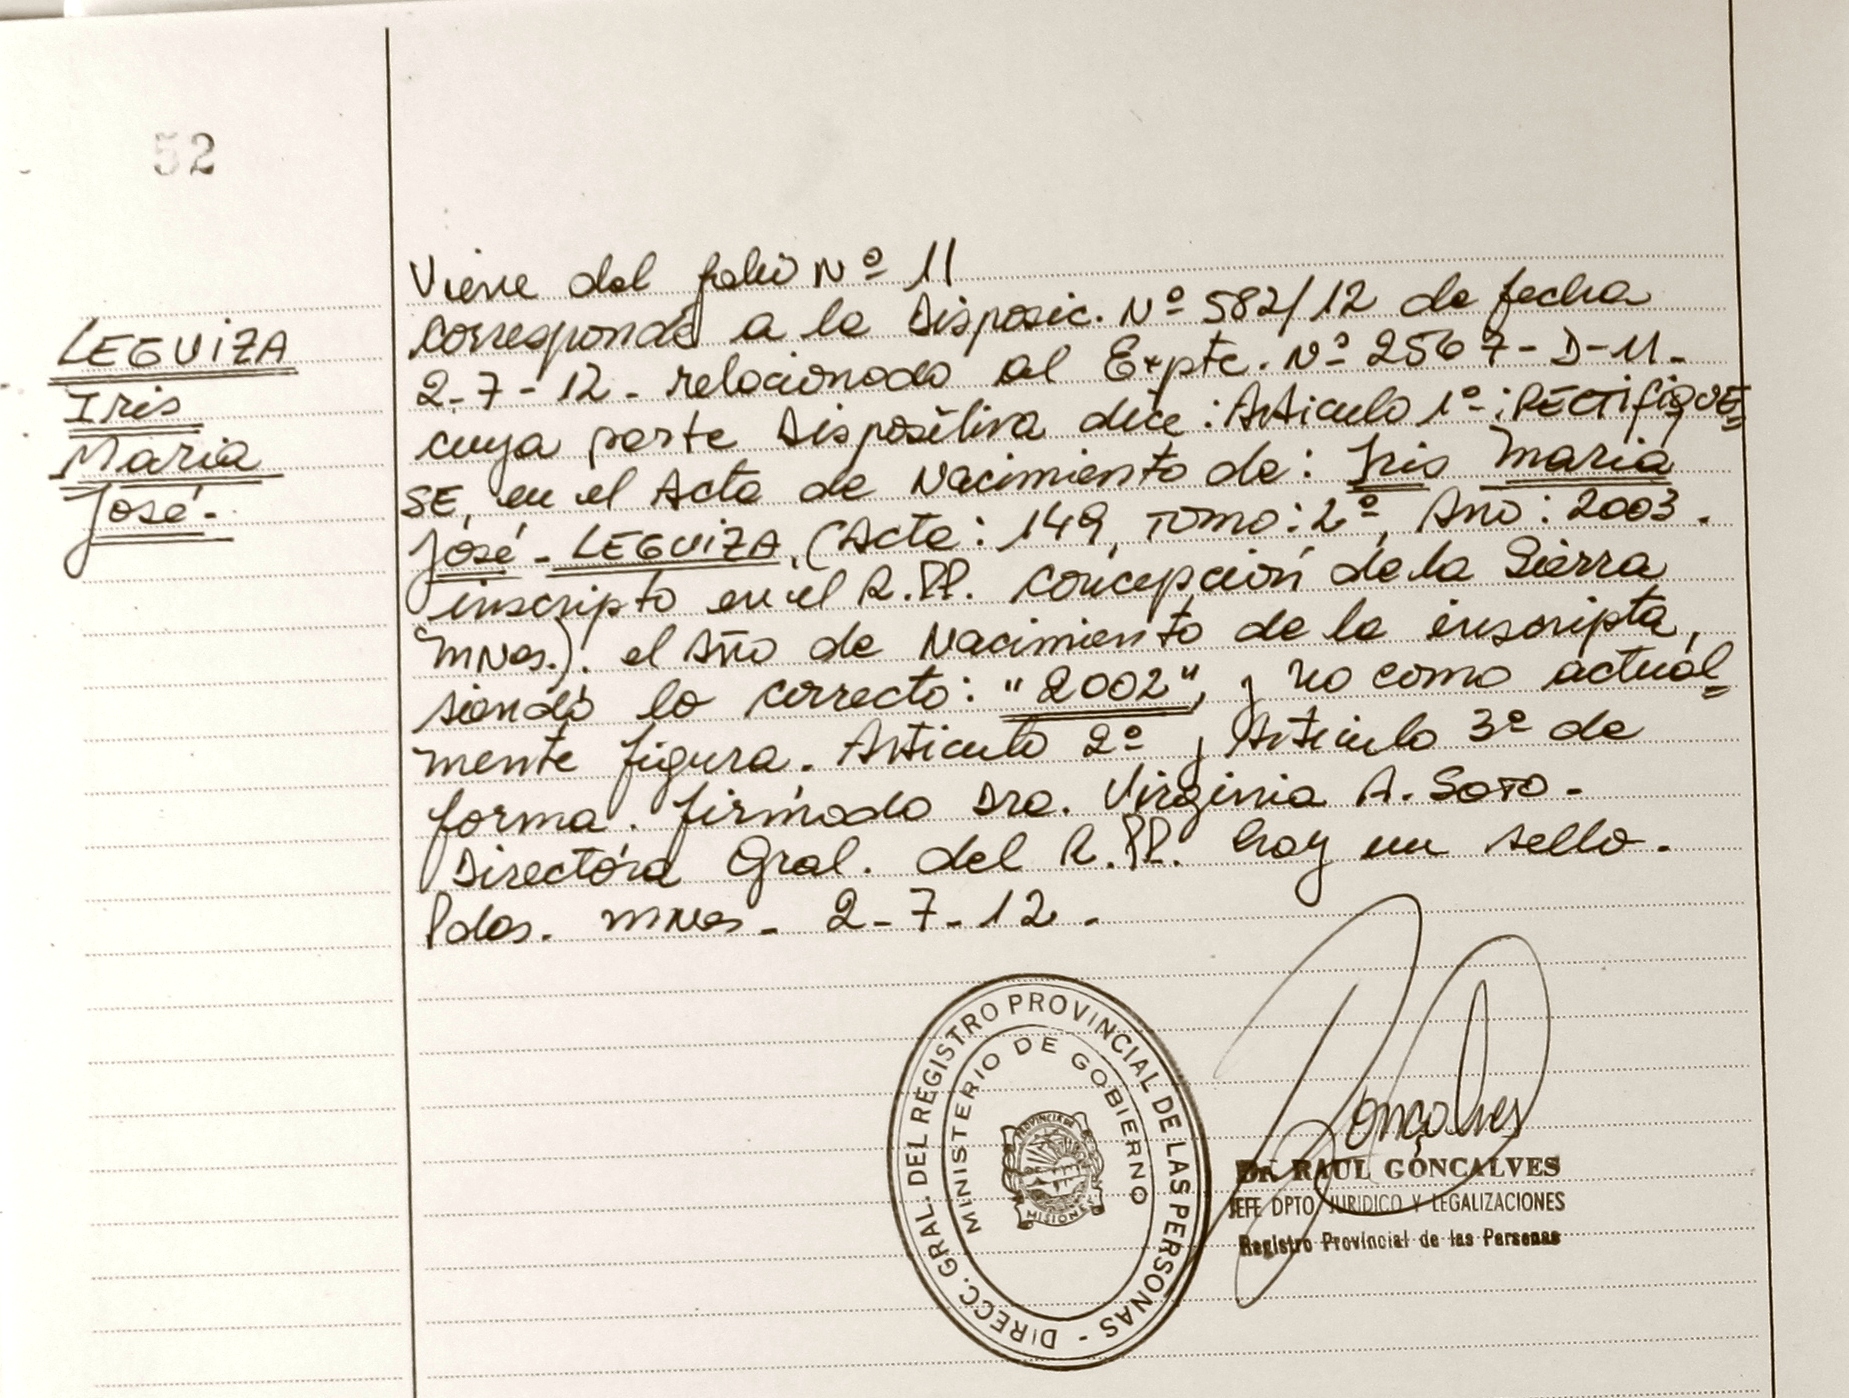 52
LEGUIZA
Iris
Maria
José.-
Viene del folio Nº 11
corresponde a la Disposic. Nº 582/12 de fecha
2-7-12- relacionado al Expte. Nº 2567-D-11-
cuya parte Dispositiva dice: Articulo 1º: RECTIFIQUE=
SE, en el Acta de Nacimiento de: Iris Maria
José - LEGUIZA. (Acta: 149, Tomo: 2º, Año: 2003.
inscripto en el R.PP. Concepción de la Sierra
MNes.). el Año de Nacimiento de la inscripta,
siendo lo correcto: "2002", y no como actual=
mente figura. Articulo 2º y Articulo 3º de
forma. firmado Dra. Virginia A. Soto-
Directora Gral. del R.PP. hay un sello.
Pdas. MNes- 2-7-12.-
DIRECC. GRAL. DEL REGISTRO PROVINCIAL DE LAS PERSONAS -
MINISTERIO DE GOBIERNO
PROVINCIA DE
MISIONES
Gonçalves
DR. RAUL GONCALVES
JEFE DPTO JURIDICO Y LEGALIZACIONES
Registro Provincial de las Personas